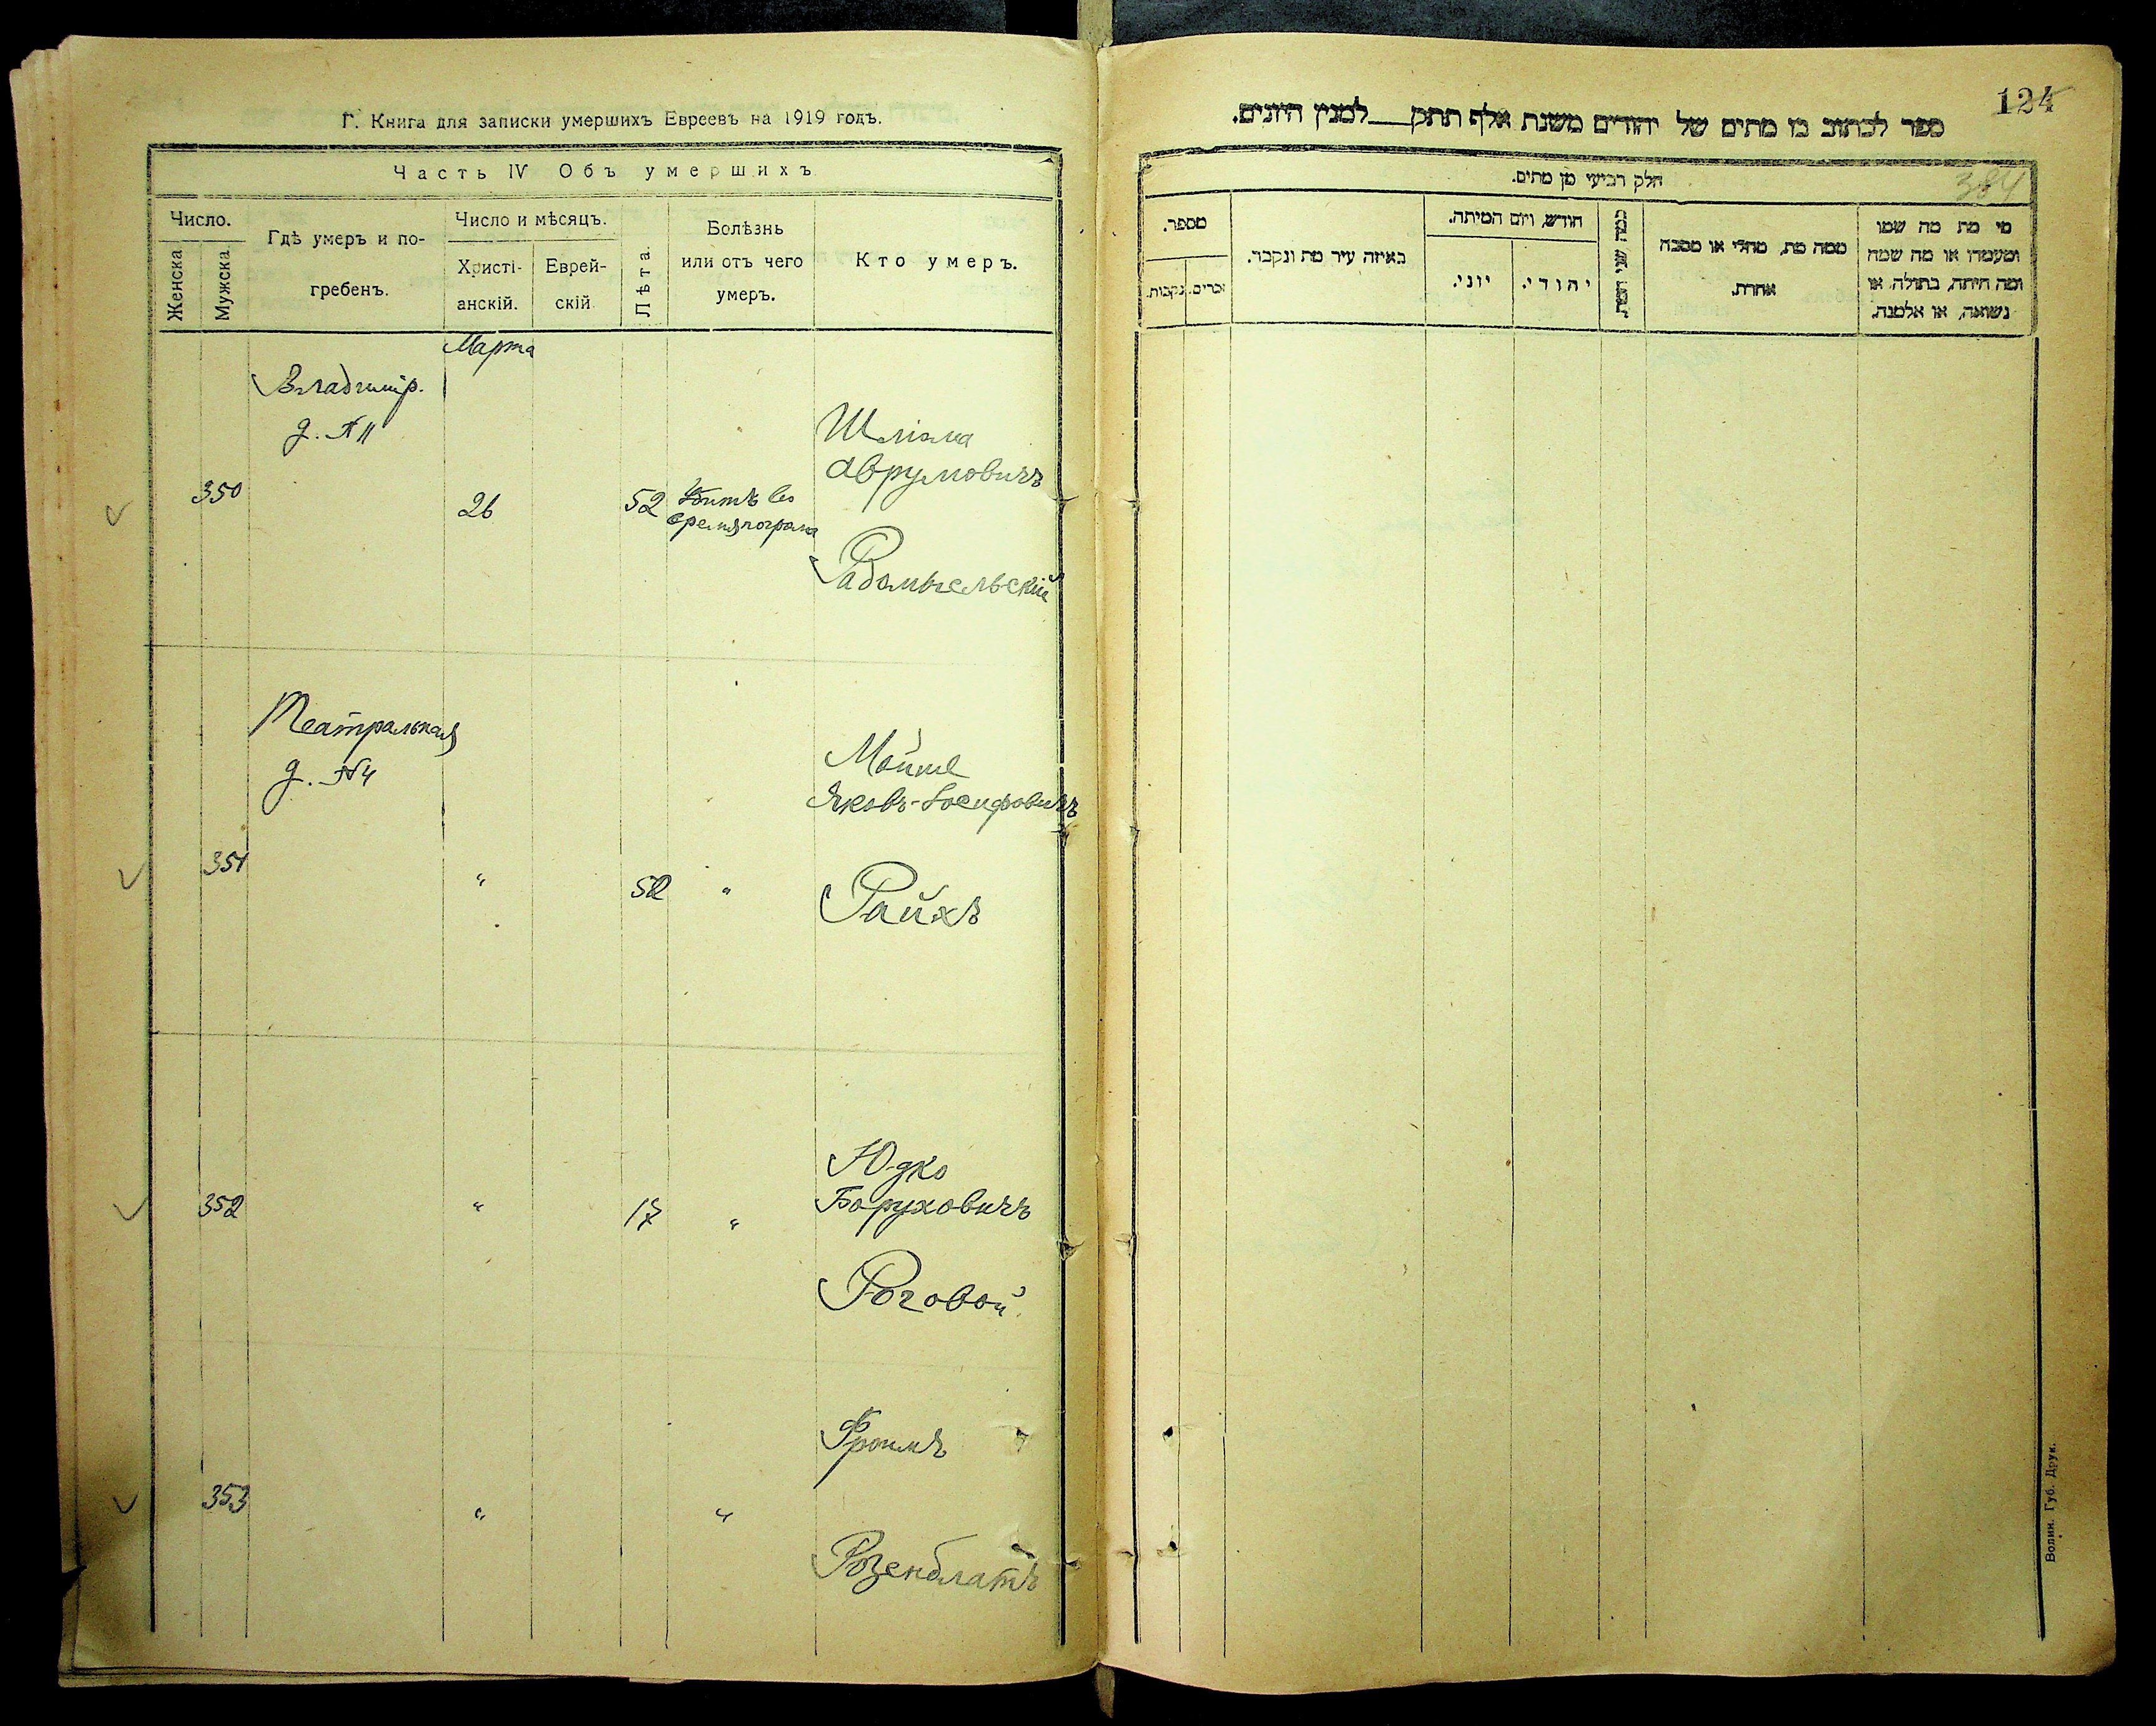 Г. Книга для записки умершихъ Евреевъ на 1919 годъ.
Часть IV Объ умершихъ
Число.
Женска
Мужска
Гдѣ умеръ и по-
гребенъ.
Число и мѣсяцъ.
Христі-
анскій.
Еврей-
скій
Лѣта.
Болѣзнь
или отъ чего
умеръ.
Кто умеръ.
Марта
Владимір.
д. №11
350
26
52
Убитъ во
время погрома
Шліома
Аврумовичъ
Радомысльскій
Театральная
д. №4
351
"
52
"
Мойше
Яковъ-Іосифовичъ
Райхъ
352
"
17
"
Юдко
Боруховичъ
Роговой
353
"
"
Фроимъ
Розенблатъ
124
ספר לכתוב בו מתים של יהודים משנת אלף תתק למנין היונים.
384
חלק רביעי מן מתים.
מספר.
זכרים.
נקבות.
באיזה עיר מת ונקבר.
חודש, ויום המיתה.
יוני.
יהודי.
כמה שני המת.
ממה מת, מחלי או מסבה
אחרת.
מי מת מה שמו
ומעמדו או מה שמה
ומה היתה, בתולה, או
נשואה, או אלמנה.
Волин. Губ. Друк.